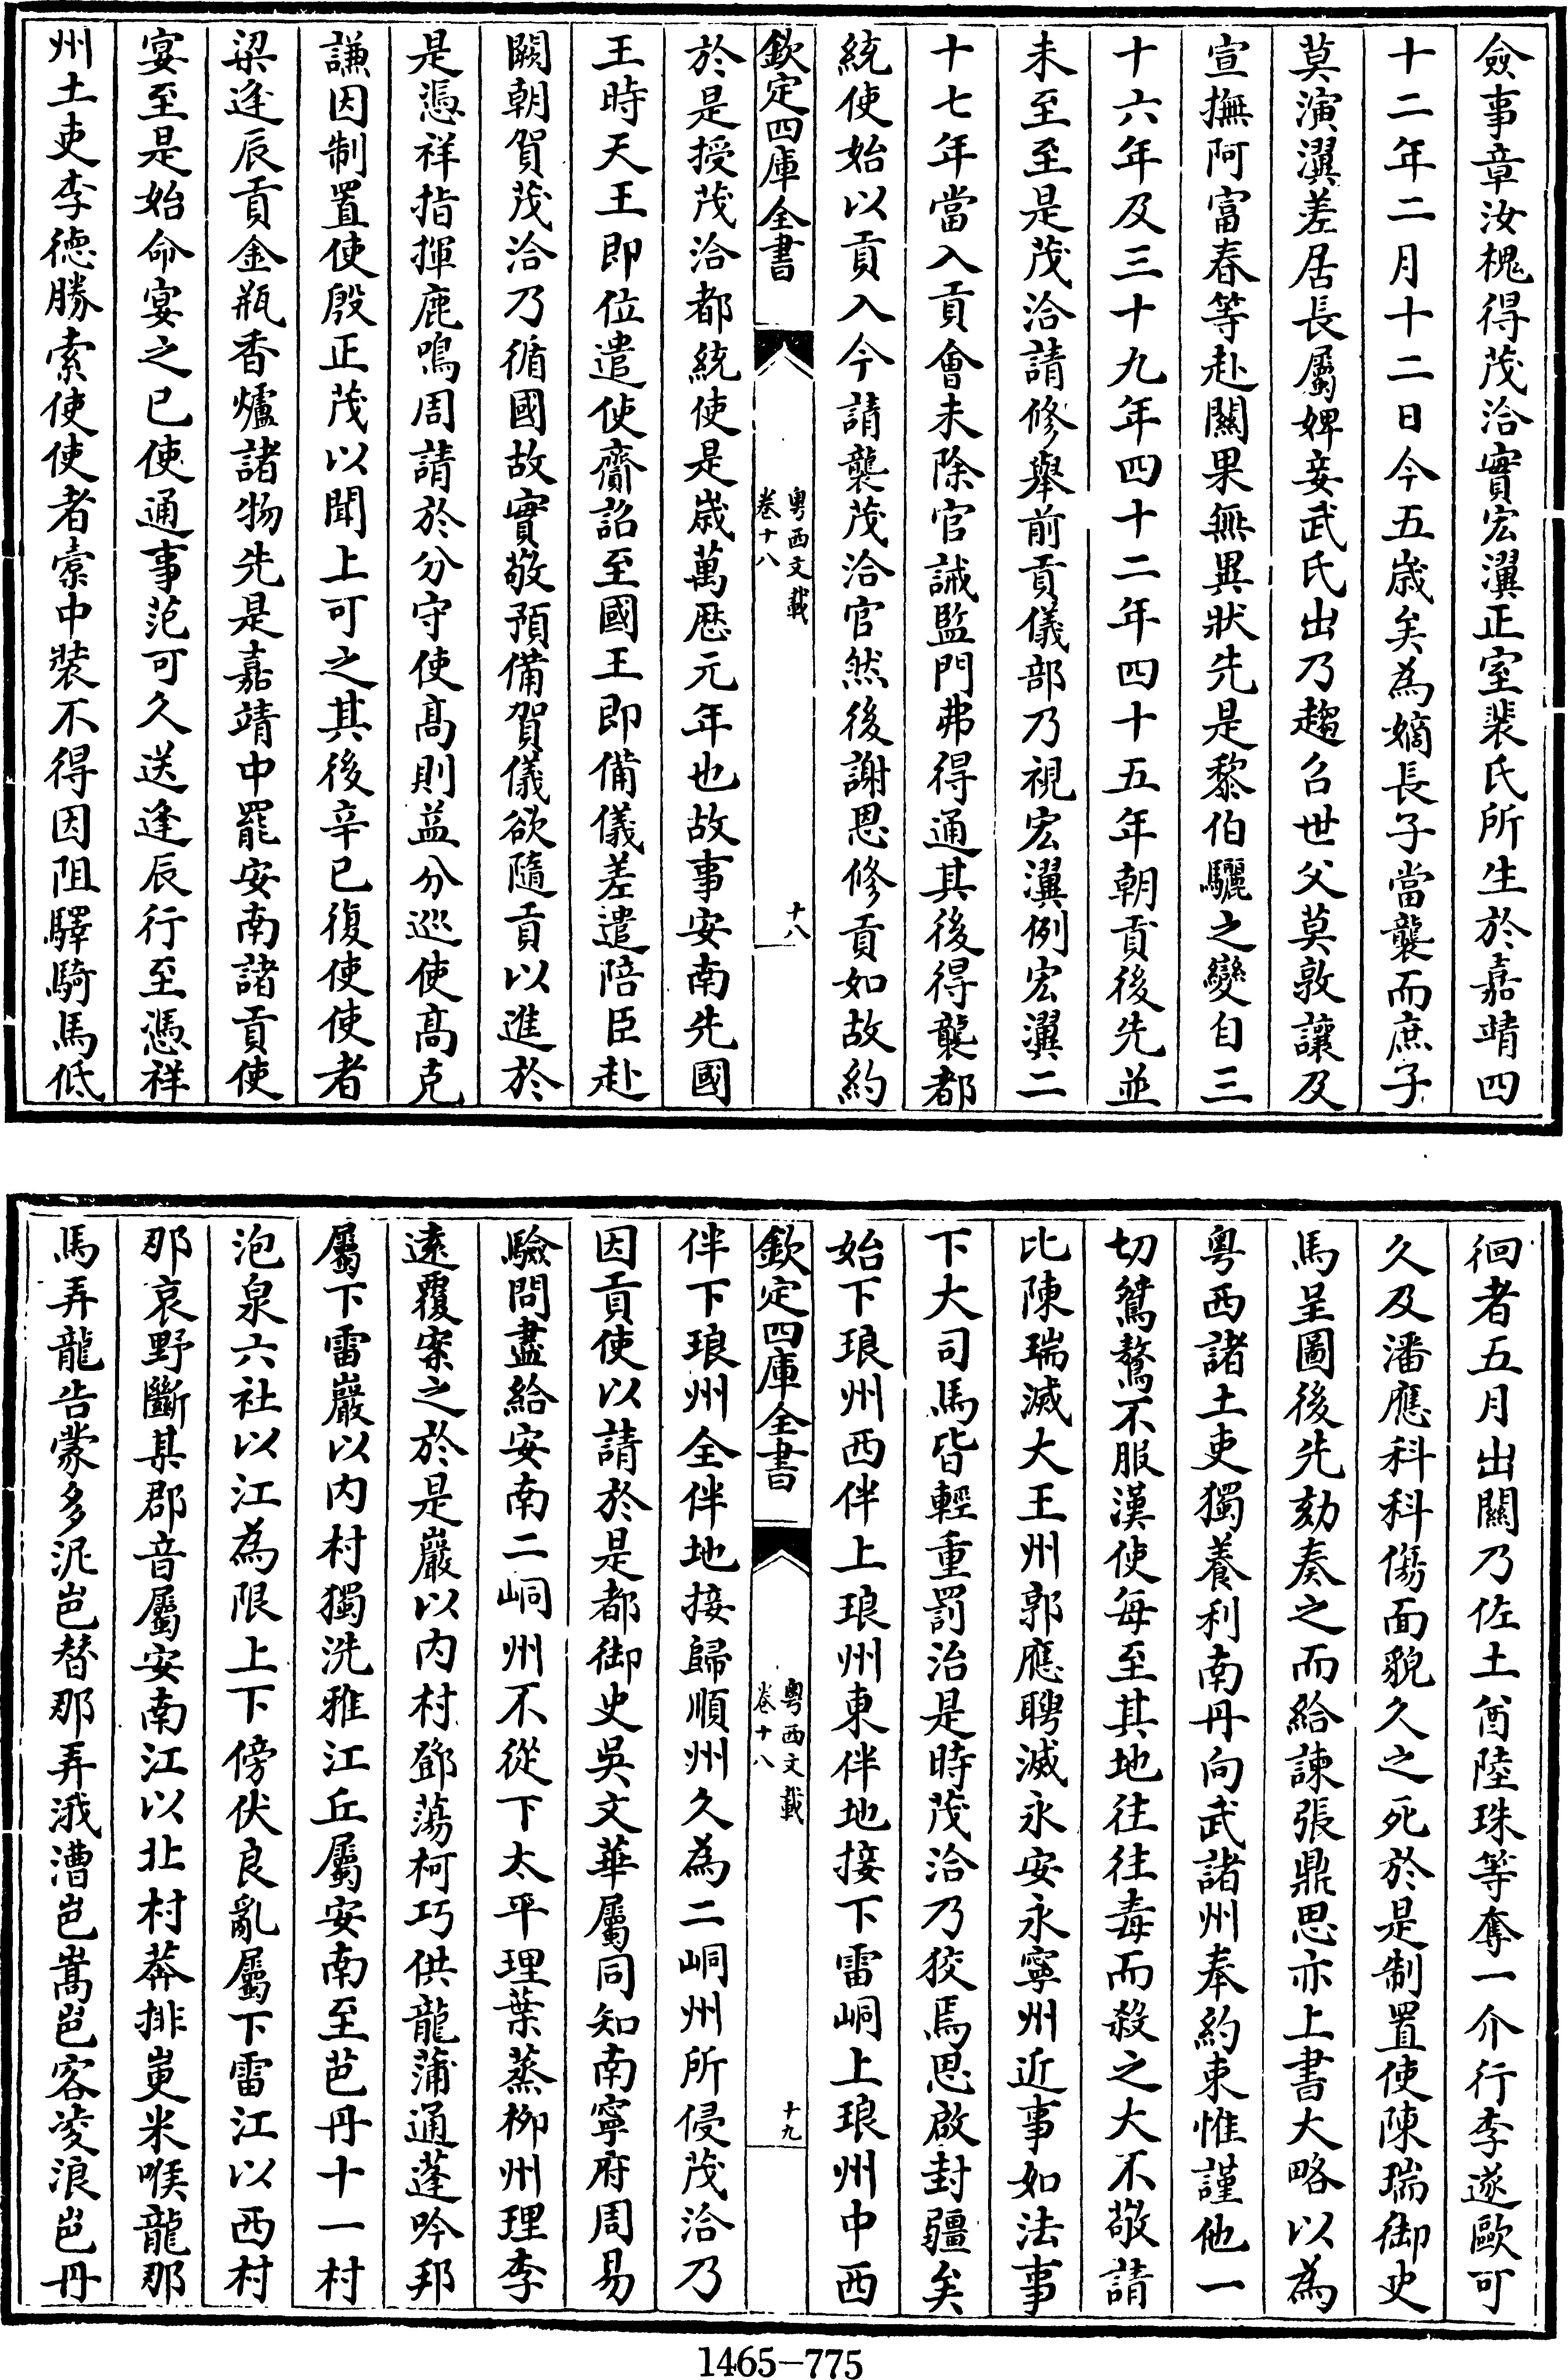 僉事章汝槐得茂洽實宏瀷正室裴氏所生於嘉靖四
十二年二月十二日今五歳矣為嫡長子當襲而庶子
莫演瀷差居長屬婢妾武氏出乃趨召世父莫敦讓及
宣撫阿富春等赴關果無異狀先是黎伯驪之變自三
十六年及三十九年四十二年四十五年朝貢後先並
未至至是茂洽請修舉前貢儀部乃視宏瀷例宏瀷二
十七年當入貢會未除官誡監門弗得通其後得襲都
統使始以貢入今請襲茂洽官然後謝恩修貢如故約
欽定四庫全書
粤西文載
卷十八
十八
於是授茂洽都統使是歳萬厯元年也故事安南先國
王時天王即位遣使齎詔至國王即備儀差遣陪臣赴
闕朝賀茂洽乃循國故實敬預備賀儀欲隨貢以進於
是憑祥指揮鹿鳴周請於分守使髙則益分巡使髙克
謙因制置使殷正茂以聞上可之其後辛巳復使使者
梁逢辰貢金瓶香爐諸物先是嘉靖中罷安南諸貢使
宴至是始命宴之已使通事范可久送逢辰行至憑祥
州土吏李德勝索使使者橐中装不得因阻驛騎馬低
徊者五月出關乃佐土酋陸珠等奪一介行李遂毆可
久及潘應科科傷面貌久之死於是制置使陳瑞御史
馬呈圖後先劾奏之而給諫張鼎思亦上書大略以為
粤西諸土吏獨養利南丹向武諸州奉約束惟謹他一
切鴑驁不服漢使每至其地往往毒而殺之大不敬請
比陳瑞滅大王州郭應聘滅永安永寧州近事如法事
下大司馬皆輕重罰治是時茂洽乃狡焉思啟封疆矣
始下琅州西伴上琅州東伴地接下雷峒上琅州中西
欽定四庫全書
粤西文載
卷十八
十九
伴下琅州全伴地接歸順州久為二峒州所侵茂洽乃
因貢使以請於是都御史吳文華屬同知南寧府周易
驗問盡給安南二峒州不從下太平理葉蒸柳州理李
遠覆案之於是巖以内村鄧蕩柯巧供龍蒲通蓬吟邦
屬下雷巖以内村獨洗雅江丘屬安南至芭丹十一村
泡泉六社以江為限上下傍伏良亂屬下雷江以西村
那哀野斷其郡音屬安南江以北村莾排峺米喉龍那
馬弄龍告蒙多泥岜替那弄涐漕岜嵩岜客凌浪岜丹
1465-775